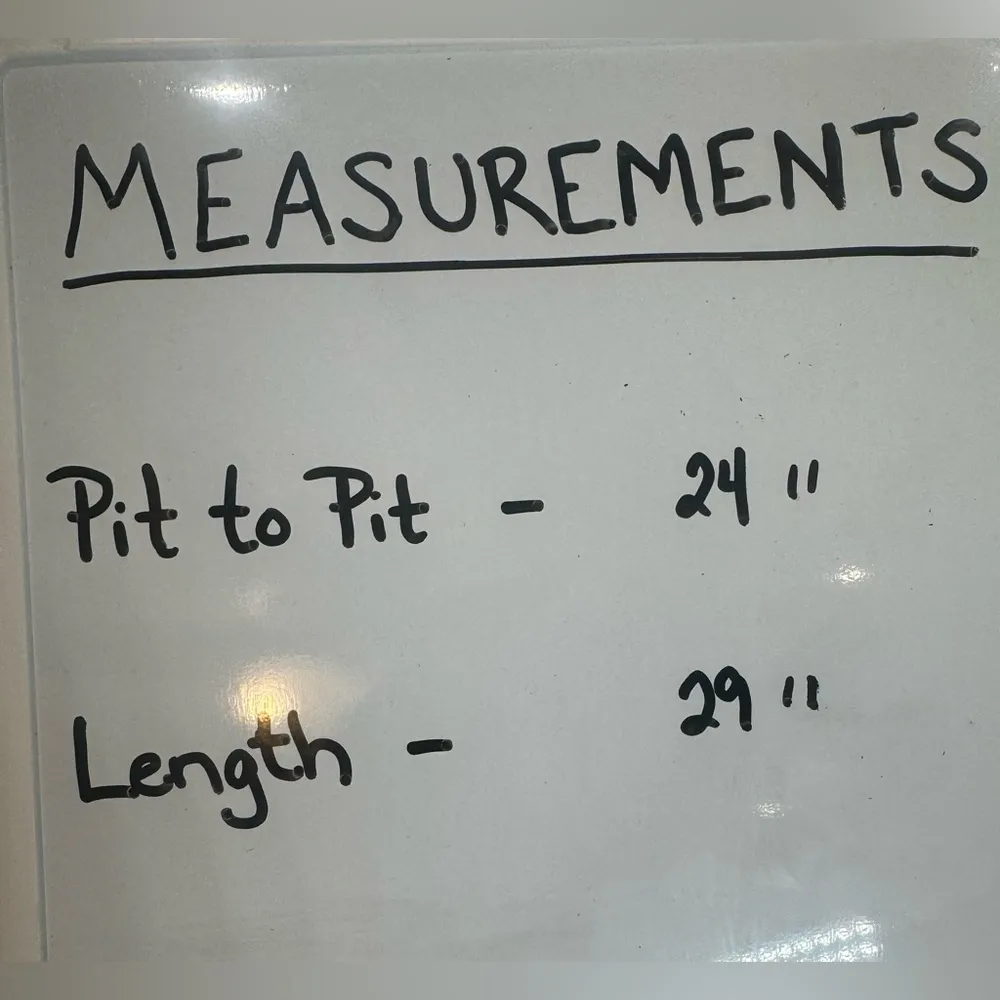 MEASUREMENTS
Pit to Pit - 24 "
Length - 29 "